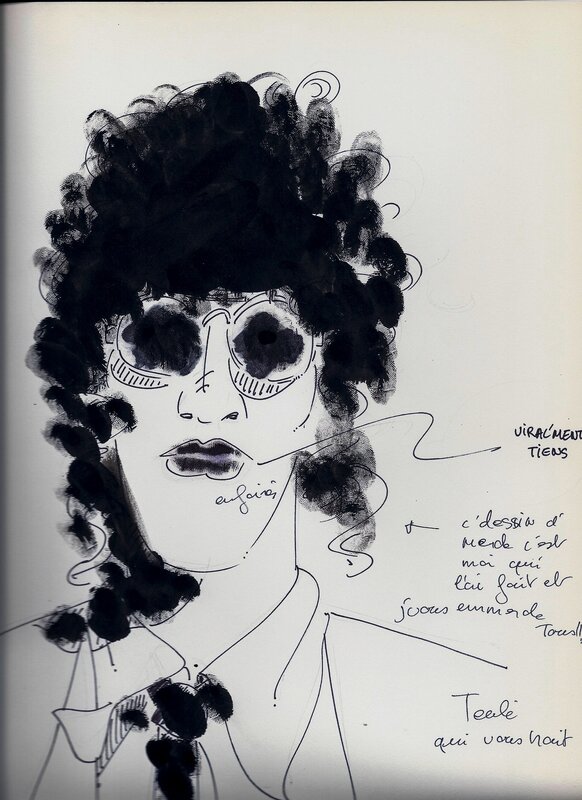 VIRAL'MENT
TIENS
c'dessin d'
merde c'est
moi qui
l'ai fait et
j'vous emmerde
Tous!!
qui vous hait